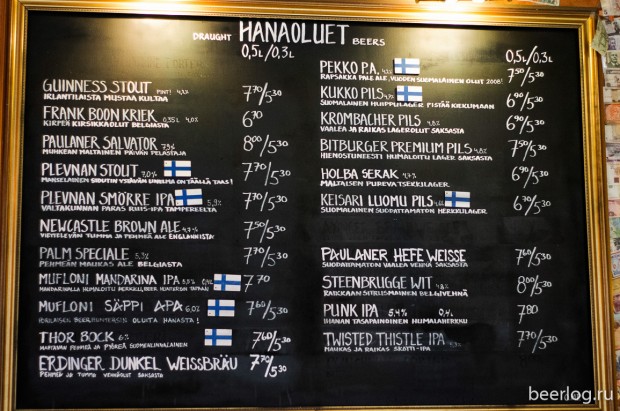 DRAUGHT HANAOLUET BEERS
0,5L/0,3L
GUINNESS STOUT PINT! 4,2% 7 70/5 30
IRLANTILAISTA MUSTAA KULTAA
FRANK BOON KRIEK 0,35L 4,0% 6 90
KIRPEÄ KIRSIKKAOLUT BELGIASTA
PAULANER SALVATOR 7,9% 8 00/5 30
MUNKEAN MALTAINEN PÄIVÄN PELASTAJA
PLEVNAN STOUT 7,0% 7 70/5 30
OLUTIN YSTÄVÄN UNELMA ON TÄÄLLÄ TAAS!
PLEVNAN SMÖRRE IPA 5,9% 7 70/5 30
VALTAKUNNAN PARAS RUIS-IPA TAMPEREELTA
NEWCASTLE BROWN ALE 4,7% 7 50/5 30
VIETTELEVÄN TUMMA JA PEHMEÄ ALE ENGLANNISTA
PALM SPECIALE 5,2% 7 70/5 30
PEHMEÄN MAUKAS ALE BELGIASTA
MUFLONI MANDARINA IPA 5,0% 0,4L 7 70
MUFLONI SÄPPI APA 6,0% 7 60/5 30
OLUITA HANASTA!
THOR BOCK 6% 7 60/5 30
MAKEAVAN PEHMEÄ JA PYÖREÄ SUOMENLINNALAINEN
ERDINGER DUNKEL WEISSBRÄU 7 70/5 30
PEHMEÄ JA TUMMA VEHNÄOLUT SAKSASTA
0,5L/0,3L
PEKKO P.A. 4,7% 7 50/5 30
RAPSAKKA PALE ALE, VUODEN SUOMALAINEN OLUT 2008!
KUKKO PILS 4,7% 6 90/5 30
SUOMALAINEN HUIPPULAGER PISTÄÄ KIEKUMAAN
KROMBACHER PILS 4,8% 6 90/5 30
VAALEA JA RAIKAS LAGEROLUT SAKSASTA
BITBURGER PREMIUM PILS 4,8% 7 50/5 30
HIENOSTUNEESTI HUMALOITU LAGER SAKSASTA
HOLBA SERAK 4,7% 6 70/5 30
MALTAISEN PUPEVA TSEKKILAGER
KEISARI LUOMU PILS 4,6% 6 70/5 30
SUOMALAINEN SUODATTAMATON HERKKULAGER
PAULANER HEFE WEISSE 7 60/5 30
SUODATTAMATON VAALEA VEHNÄ SAKSASTA
STEENBRUGGE WIT 4,8% 8 00/5 30
RAIKKAAN SITRUSMAINEN BELGIVEHNÄ
PUNK IPA 5,4% 0,4L 7 80
IHANAN TASAPAINOINEN HUMALAHERKKU
TWISTED THISTLE IPA 7 70/5 30
MAUKAS JA RAIKAS SKOTTI-IPA
beerlog.ru